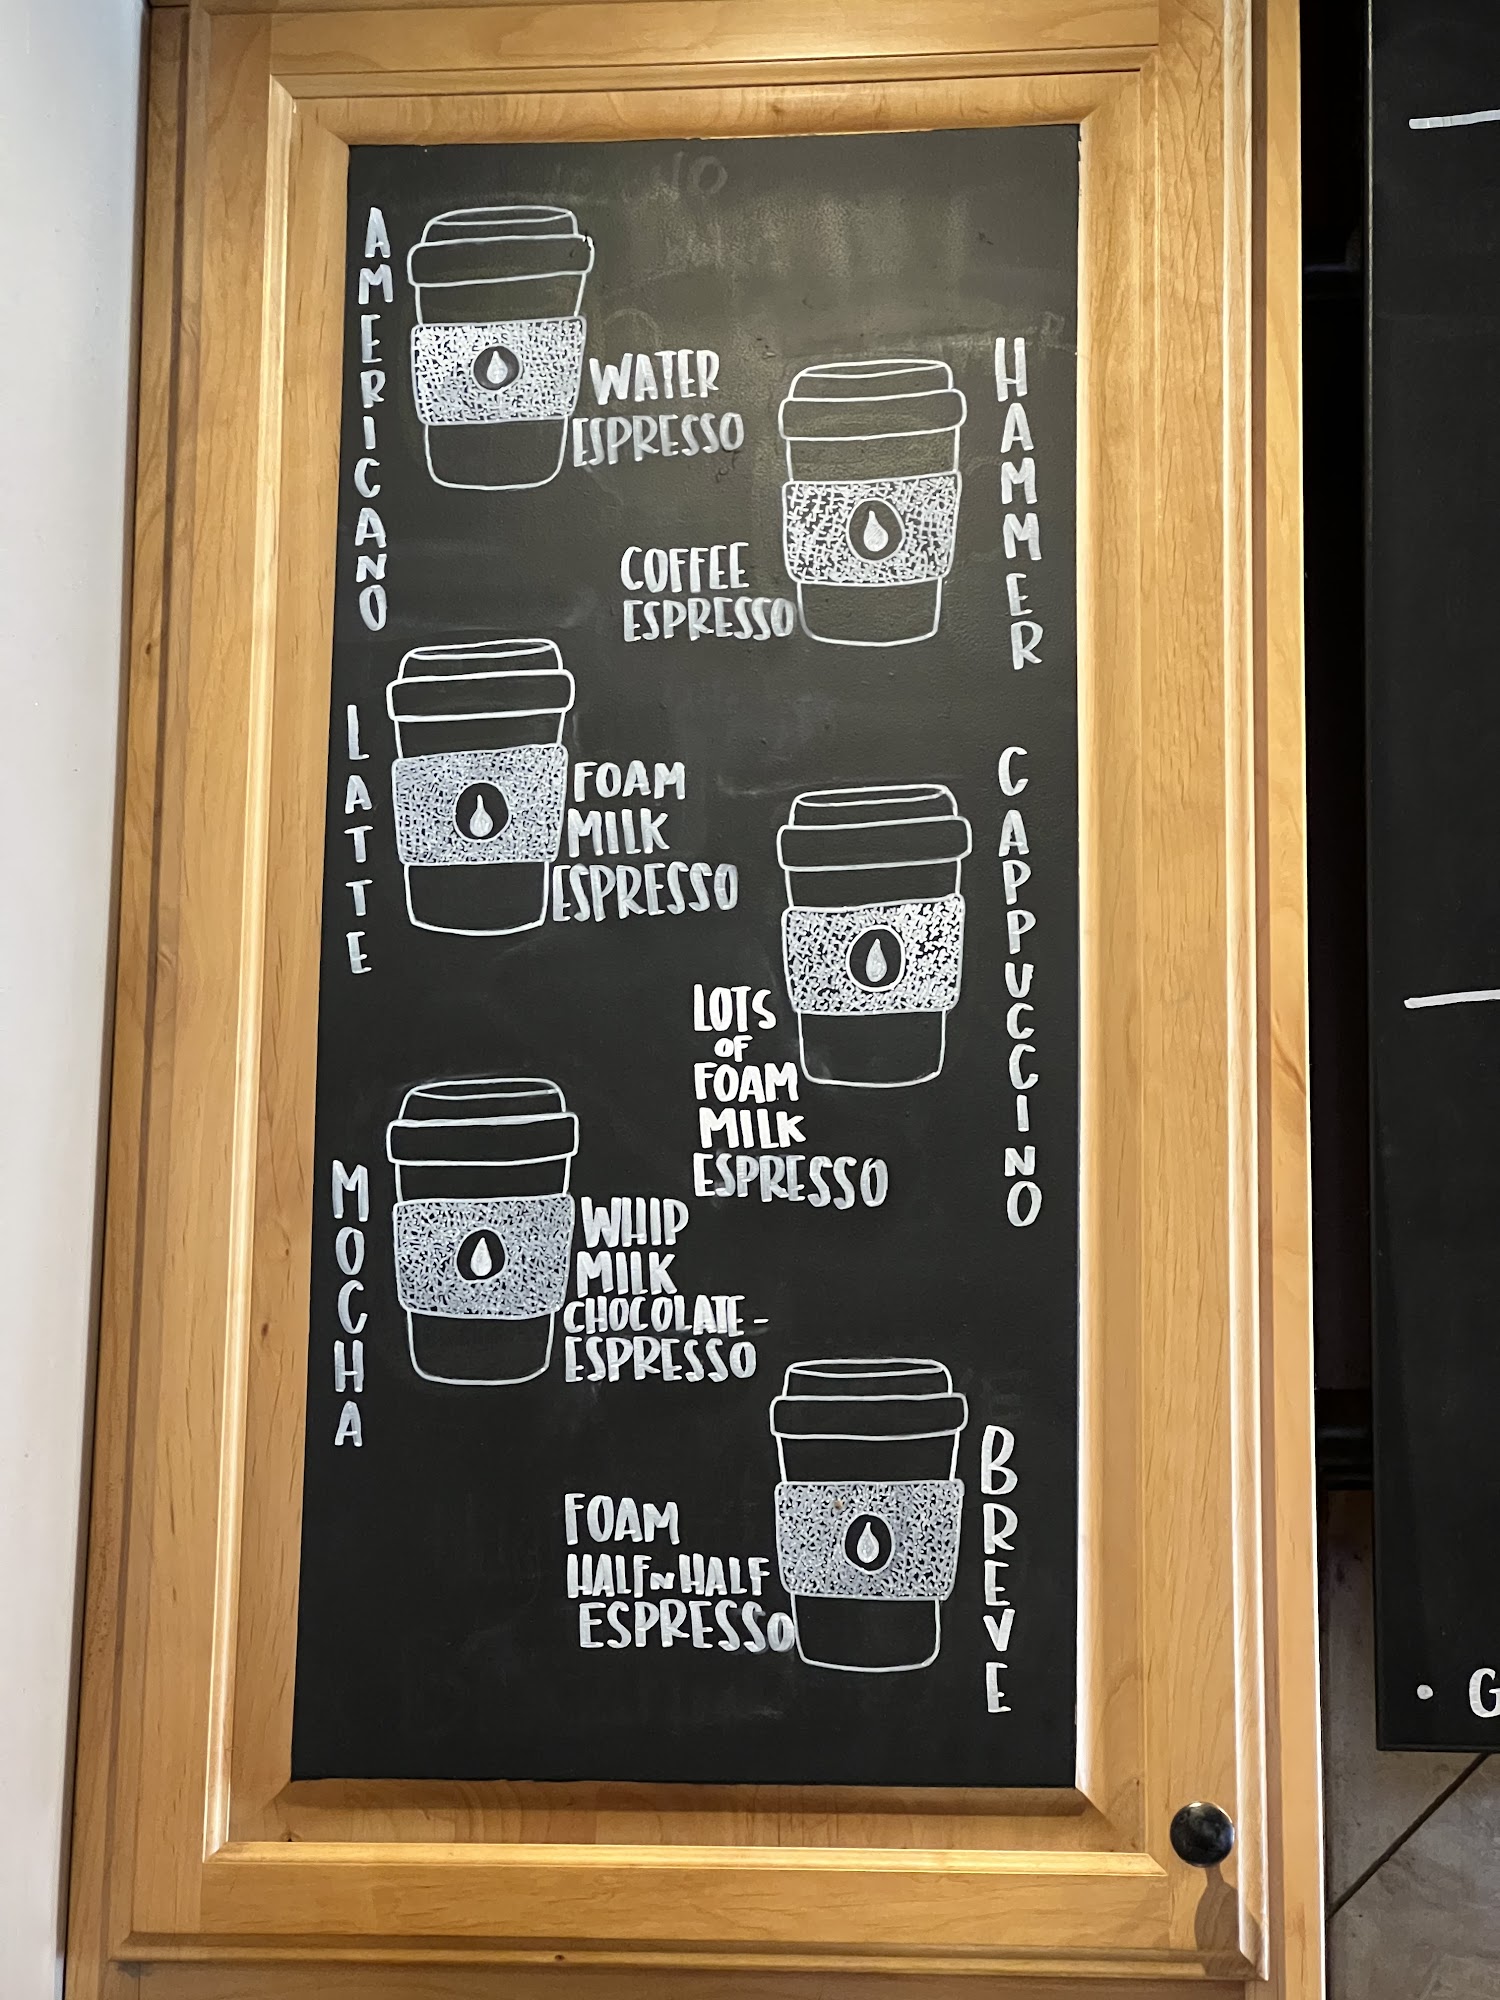 AMERICANO
WATER
ESPRESSO
HAMMER
COFFEE
ESPRESSO
LATTE
FOAM
MILK
ESPRESSO
CAPPUCCINO
LOTS
OF
FOAM
MILK
ESPRESSO
MOCHA
WHIP
MILK
CHOCOLATE-
ESPRESSO
BREVE
FOAM
HALF N HALF
ESPRESSO
• G